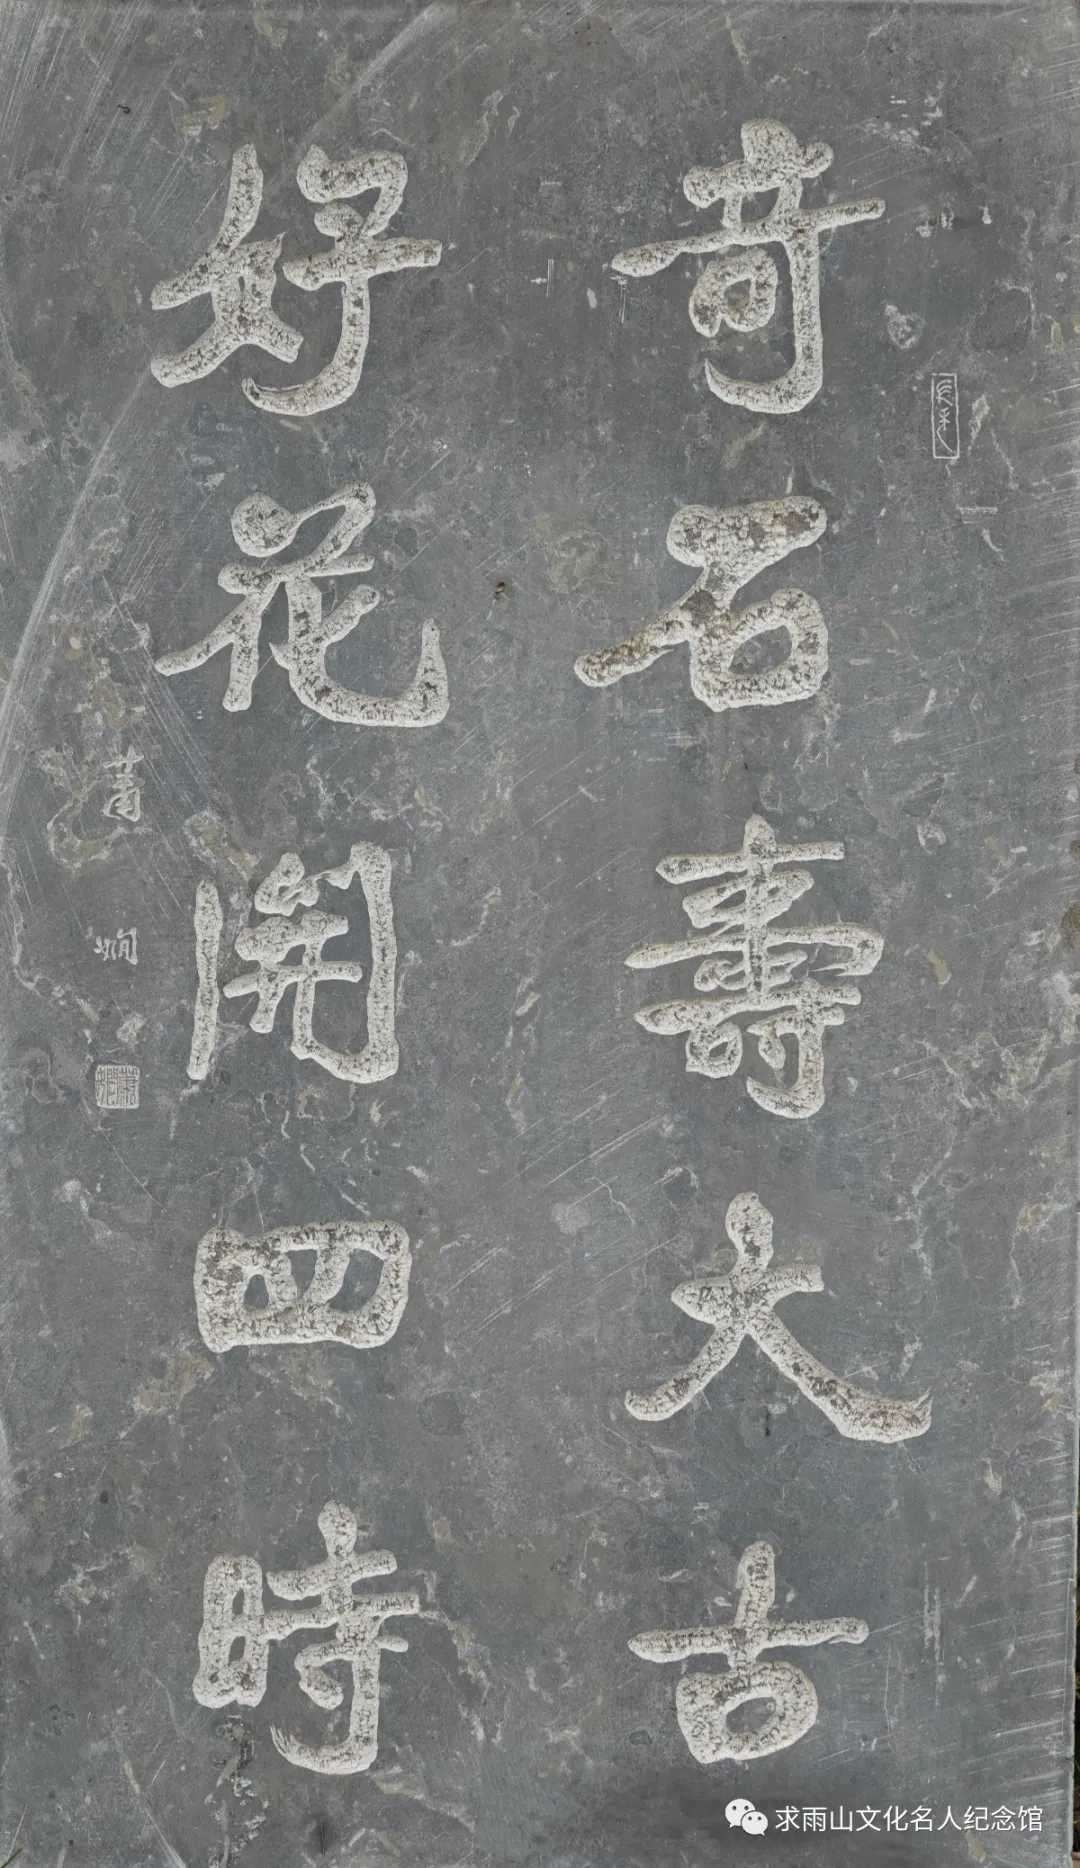 奇石壽太古
好花開四時
蕭嫻
蕭嫻
求雨山文化名人纪念馆